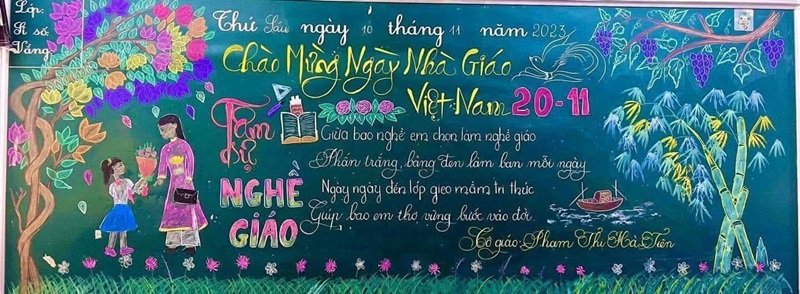 Lớp:
Sĩ số:
Vắng:
Thứ Sáu ngày 10 tháng 11 năm 2023
Chào Mừng Ngày Nhà Giáo
Việt Nam 20-11
Tâm sự
NGHỀ
GIÁO
Giữa bao nghề em chọn làm nghề giáo
Phấn trắng, bảng đen làm bạn mỗi ngày
Ngày ngày đến lớp gieo mầm tri thức
Giúp bao em thơ vững bước vào đời
Cô giáo: Phạm Thị Hà Tiên